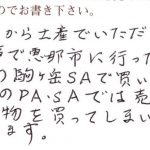 のでお書き下さい。
から土産でいただ
で恵那市に行った
の駒ヶ岳SAで買い
のPA・SAでは売
物を買ってしまい
ます。